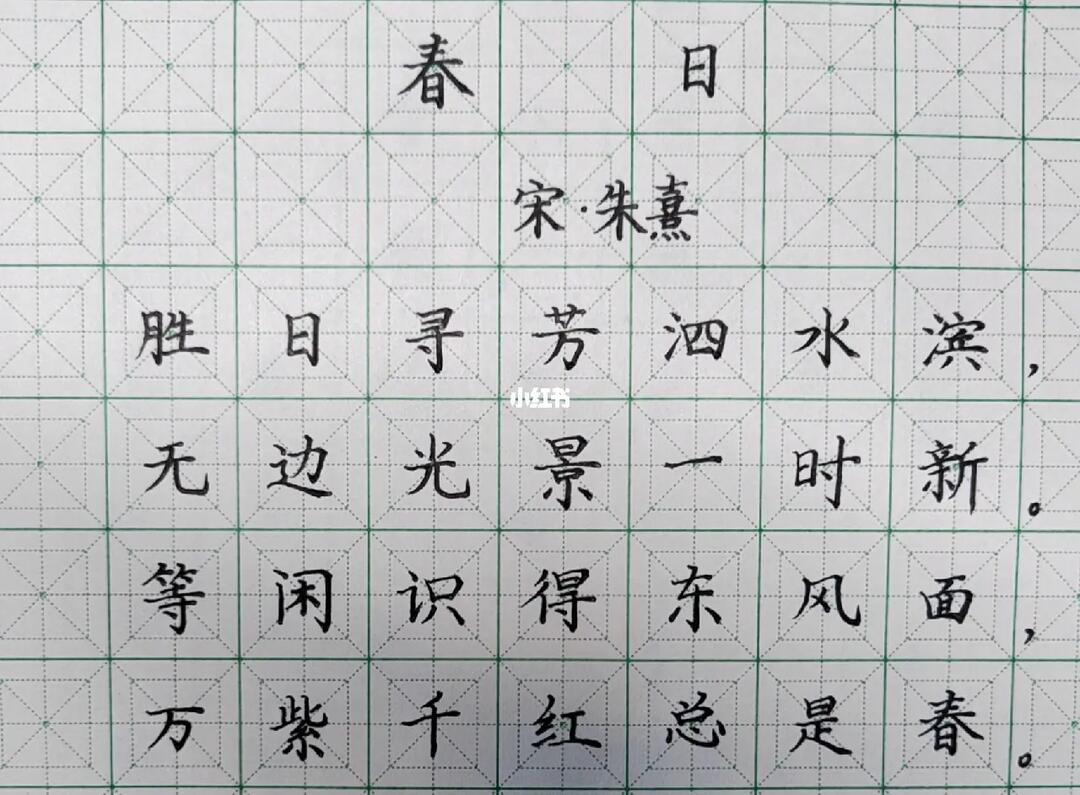 春日
宋·朱熹
胜日寻芳泗水滨，
小红书
无边光景一时新。
等闲识得东风面，
万紫千红总是春。